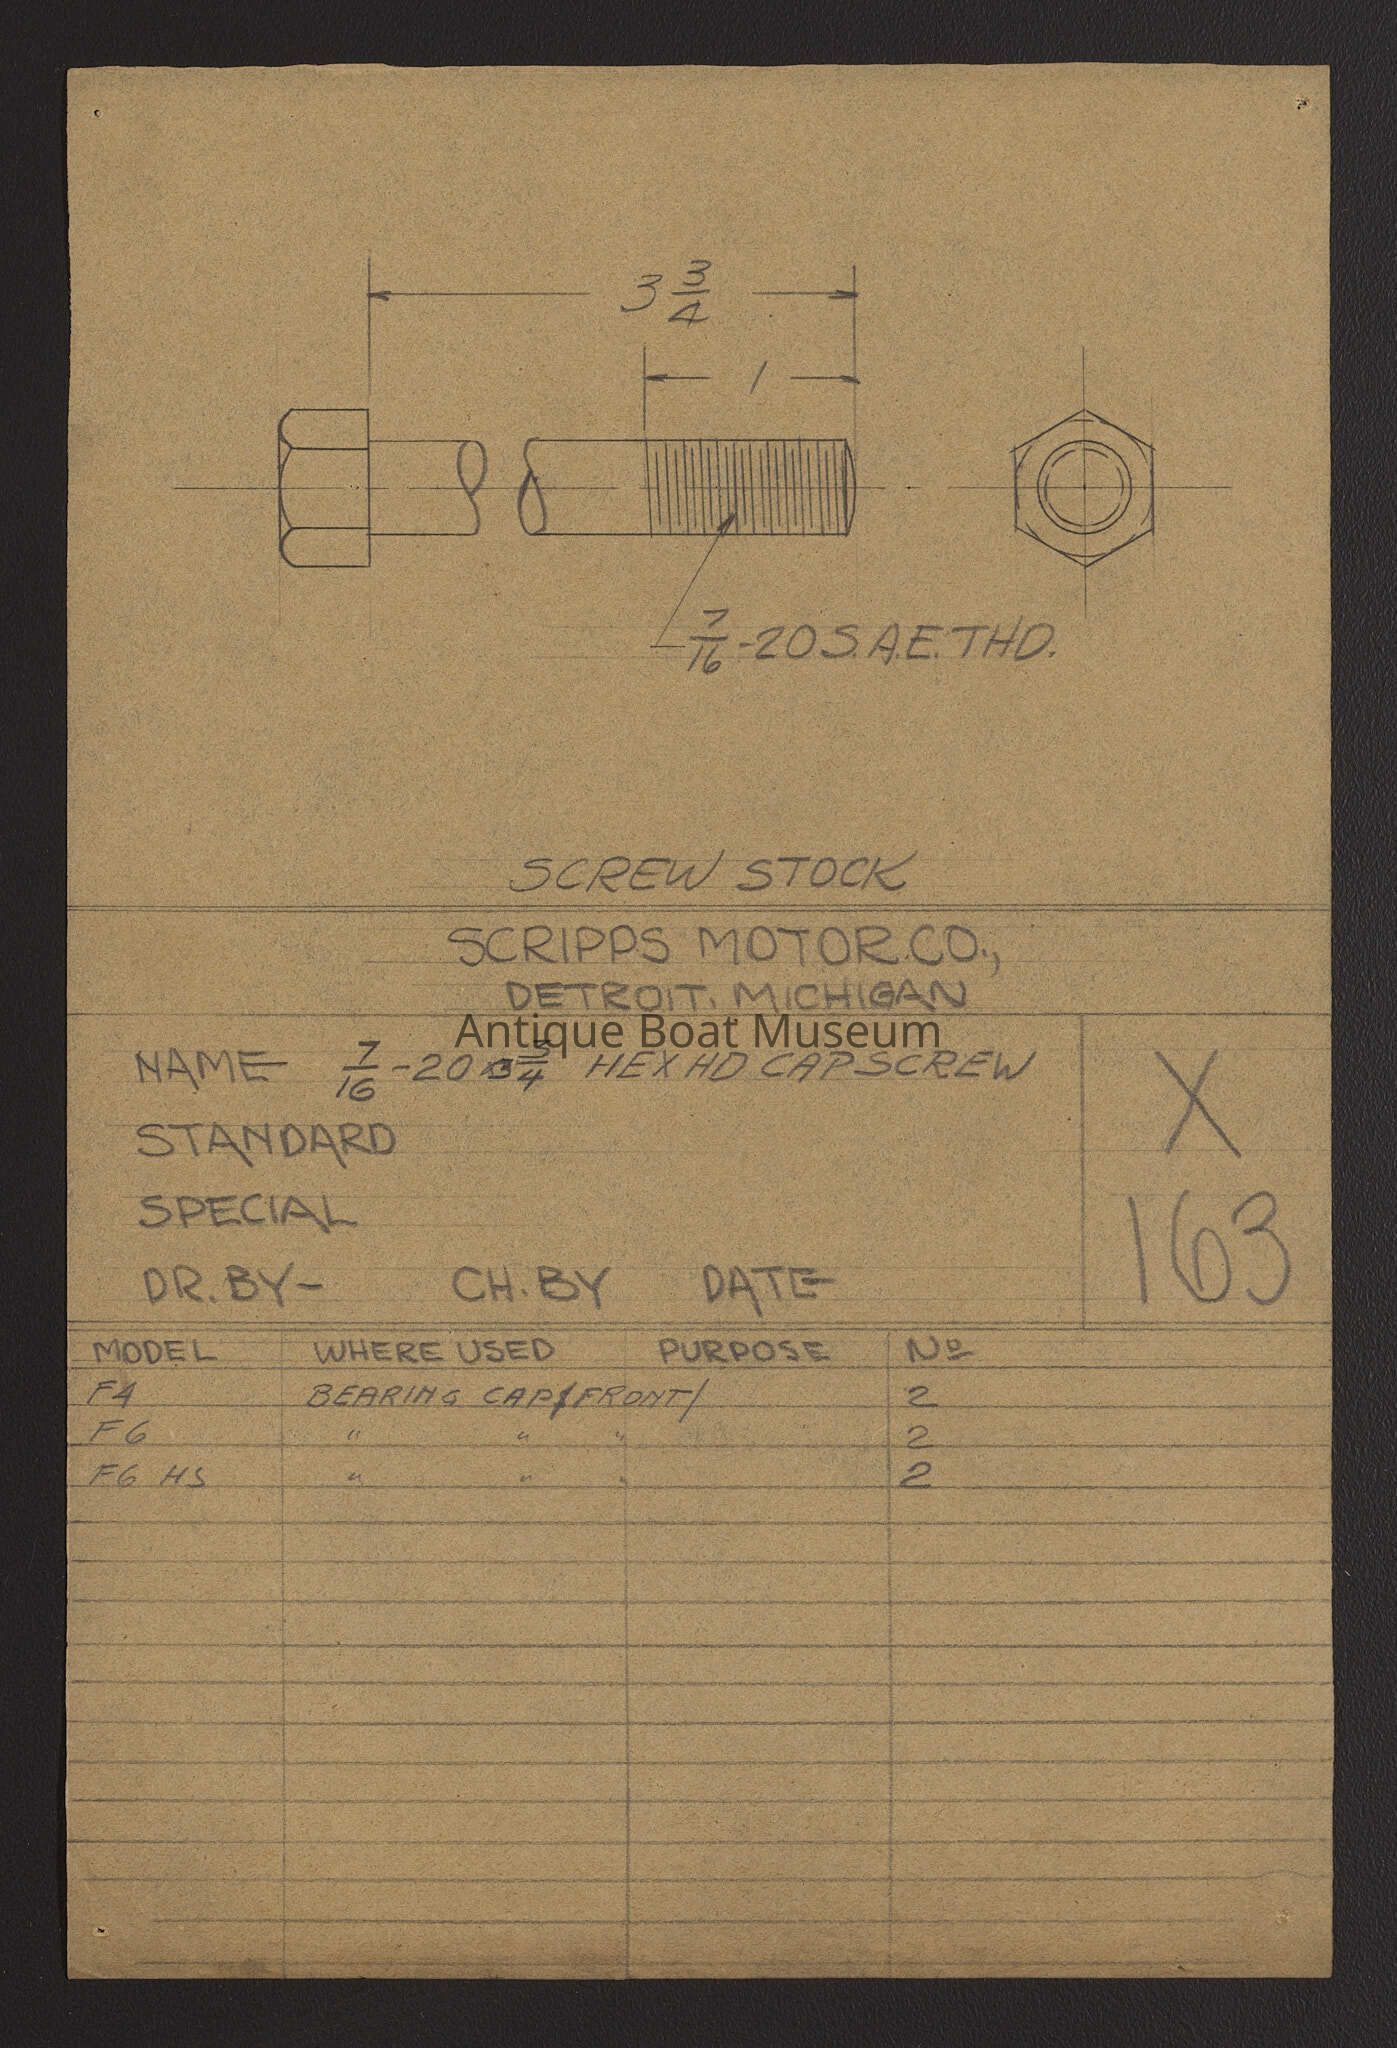 3 3/4
1
7/16-20 S.A.E. THD.
SCREW STOCK
SCRIPPS MOTOR CO.,
DETROIT, MICHIGAN
Antique Boat Museum
NAME 7/16-20 x 3 3/4 HEX HD CAPSCREW
STANDARD
SPECIAL
X
163
DR. BY- CH. BY DATE
MODEL WHERE USED PURPOSE No
F4 BEARING CAP/FRONT/ 2
F6 " " " 2
F6 HS " " " 2